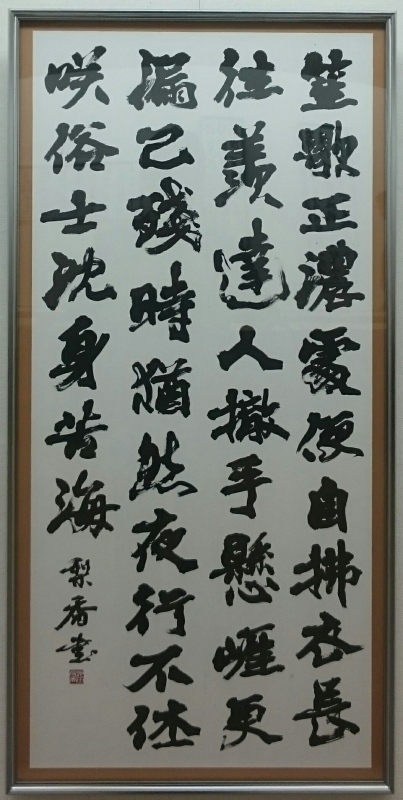 笙歌正濃處便自拂衣長
往羨達人撒手懸崖更
漏已殘時猶然夜行不休
咲俗士沈身苦海 梨香書